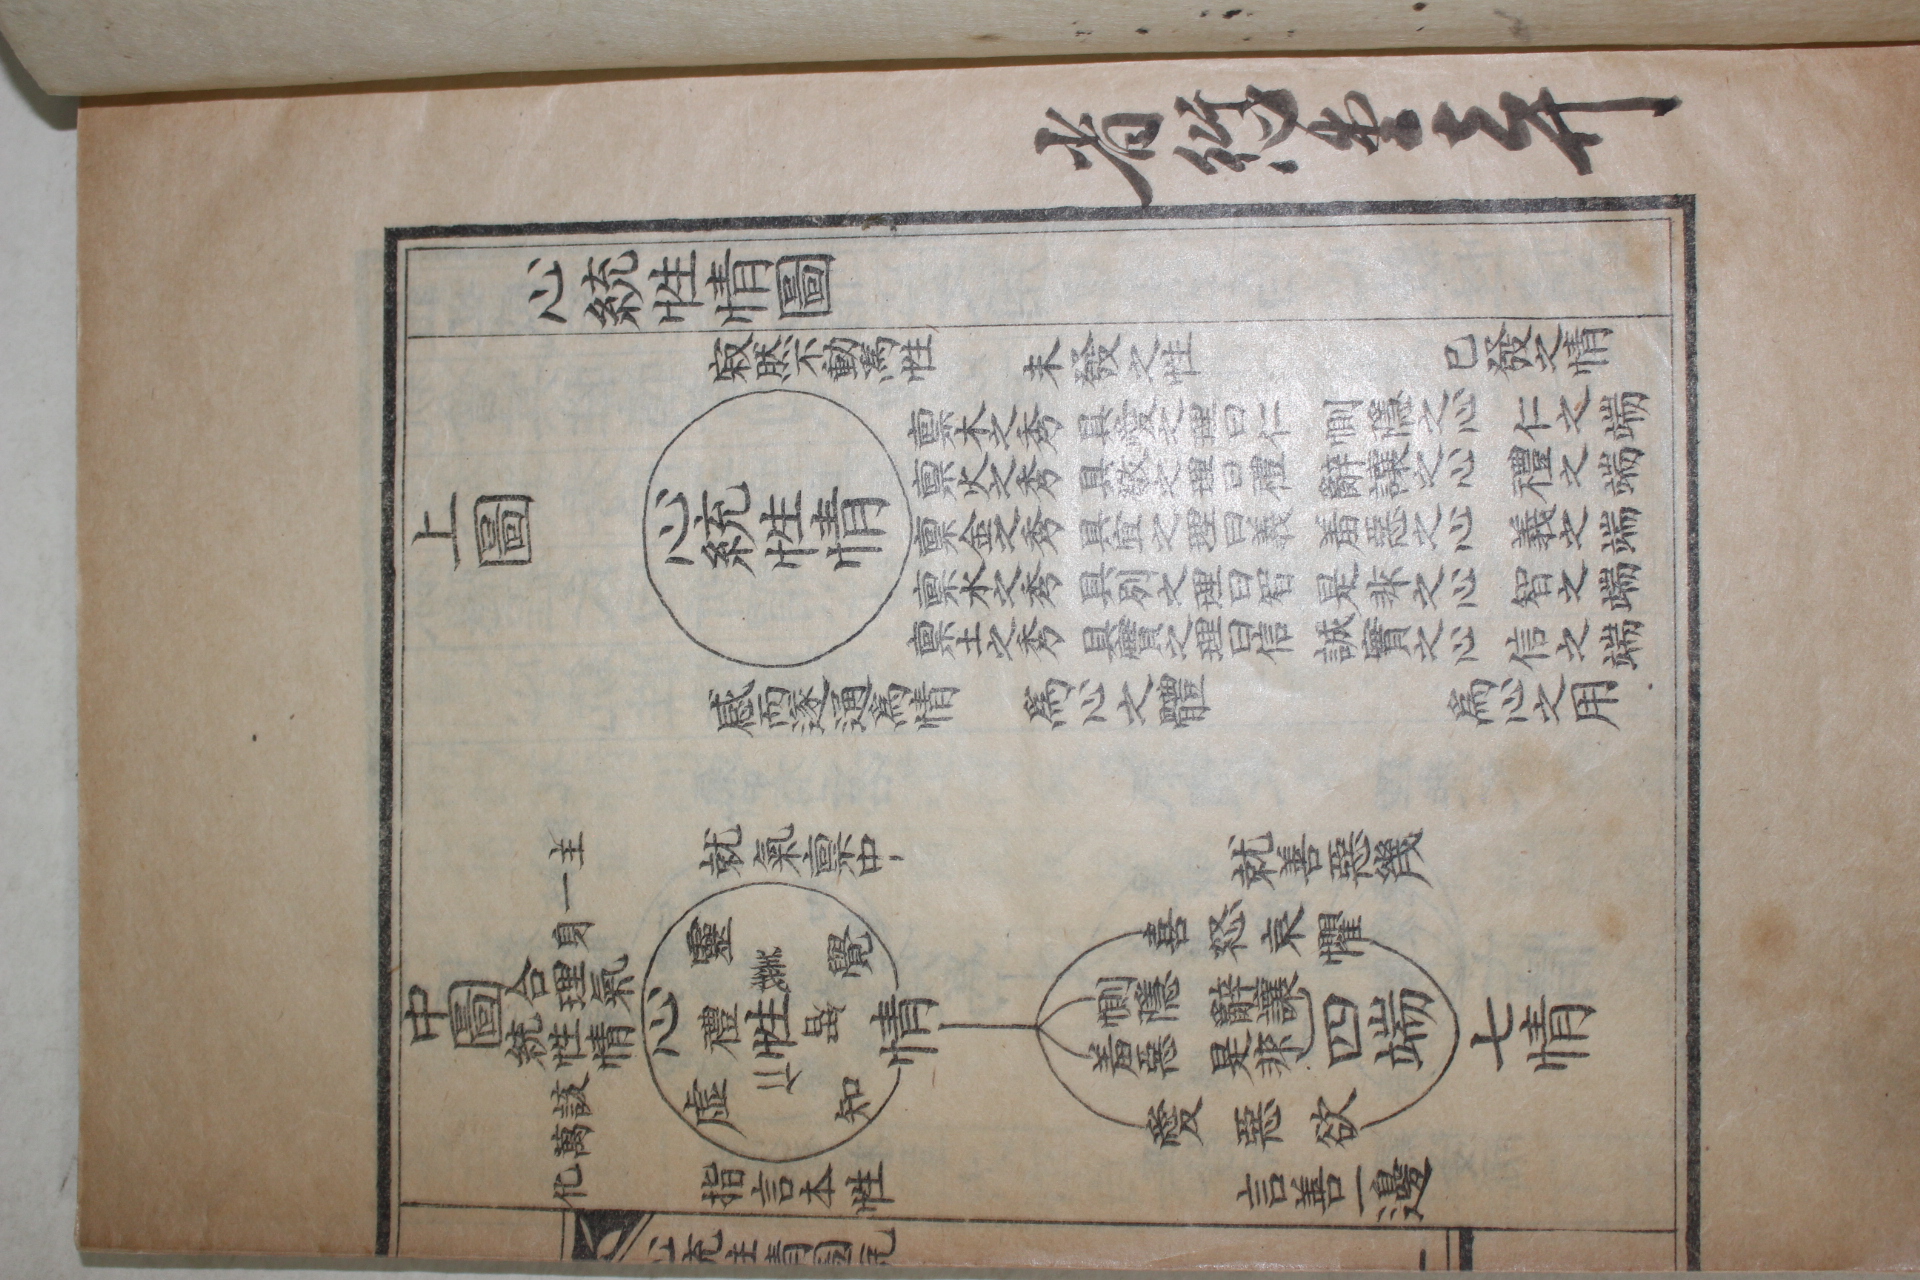 心統性情圖
上圖
心統性情
寂然不動爲性
未發之性
已發之情
稟木之秀 具愛之理曰仁 惻隱之心 仁之端
稟火之秀 具敬之理曰禮 辭讓之心 禮之端
稟金之秀 具宜之理曰義 羞惡之心 義之端
稟水之秀 具別之理曰智 是非之心 智之端
稟土之秀 具實之理曰信 誠實之心 信之端
感而遂通爲情
爲心之體
爲心之用
中圖
合理氣
統性情
主一身
該萬化
心
靈
虛
禮
義
性
仁
智
覺
知
情
就氣稟中
指言本性
喜怒哀懼
惻隱 辭讓
羞惡 是非
愛惡欲
四端
七情
就善惡幾
言善一邊
心統性情圖